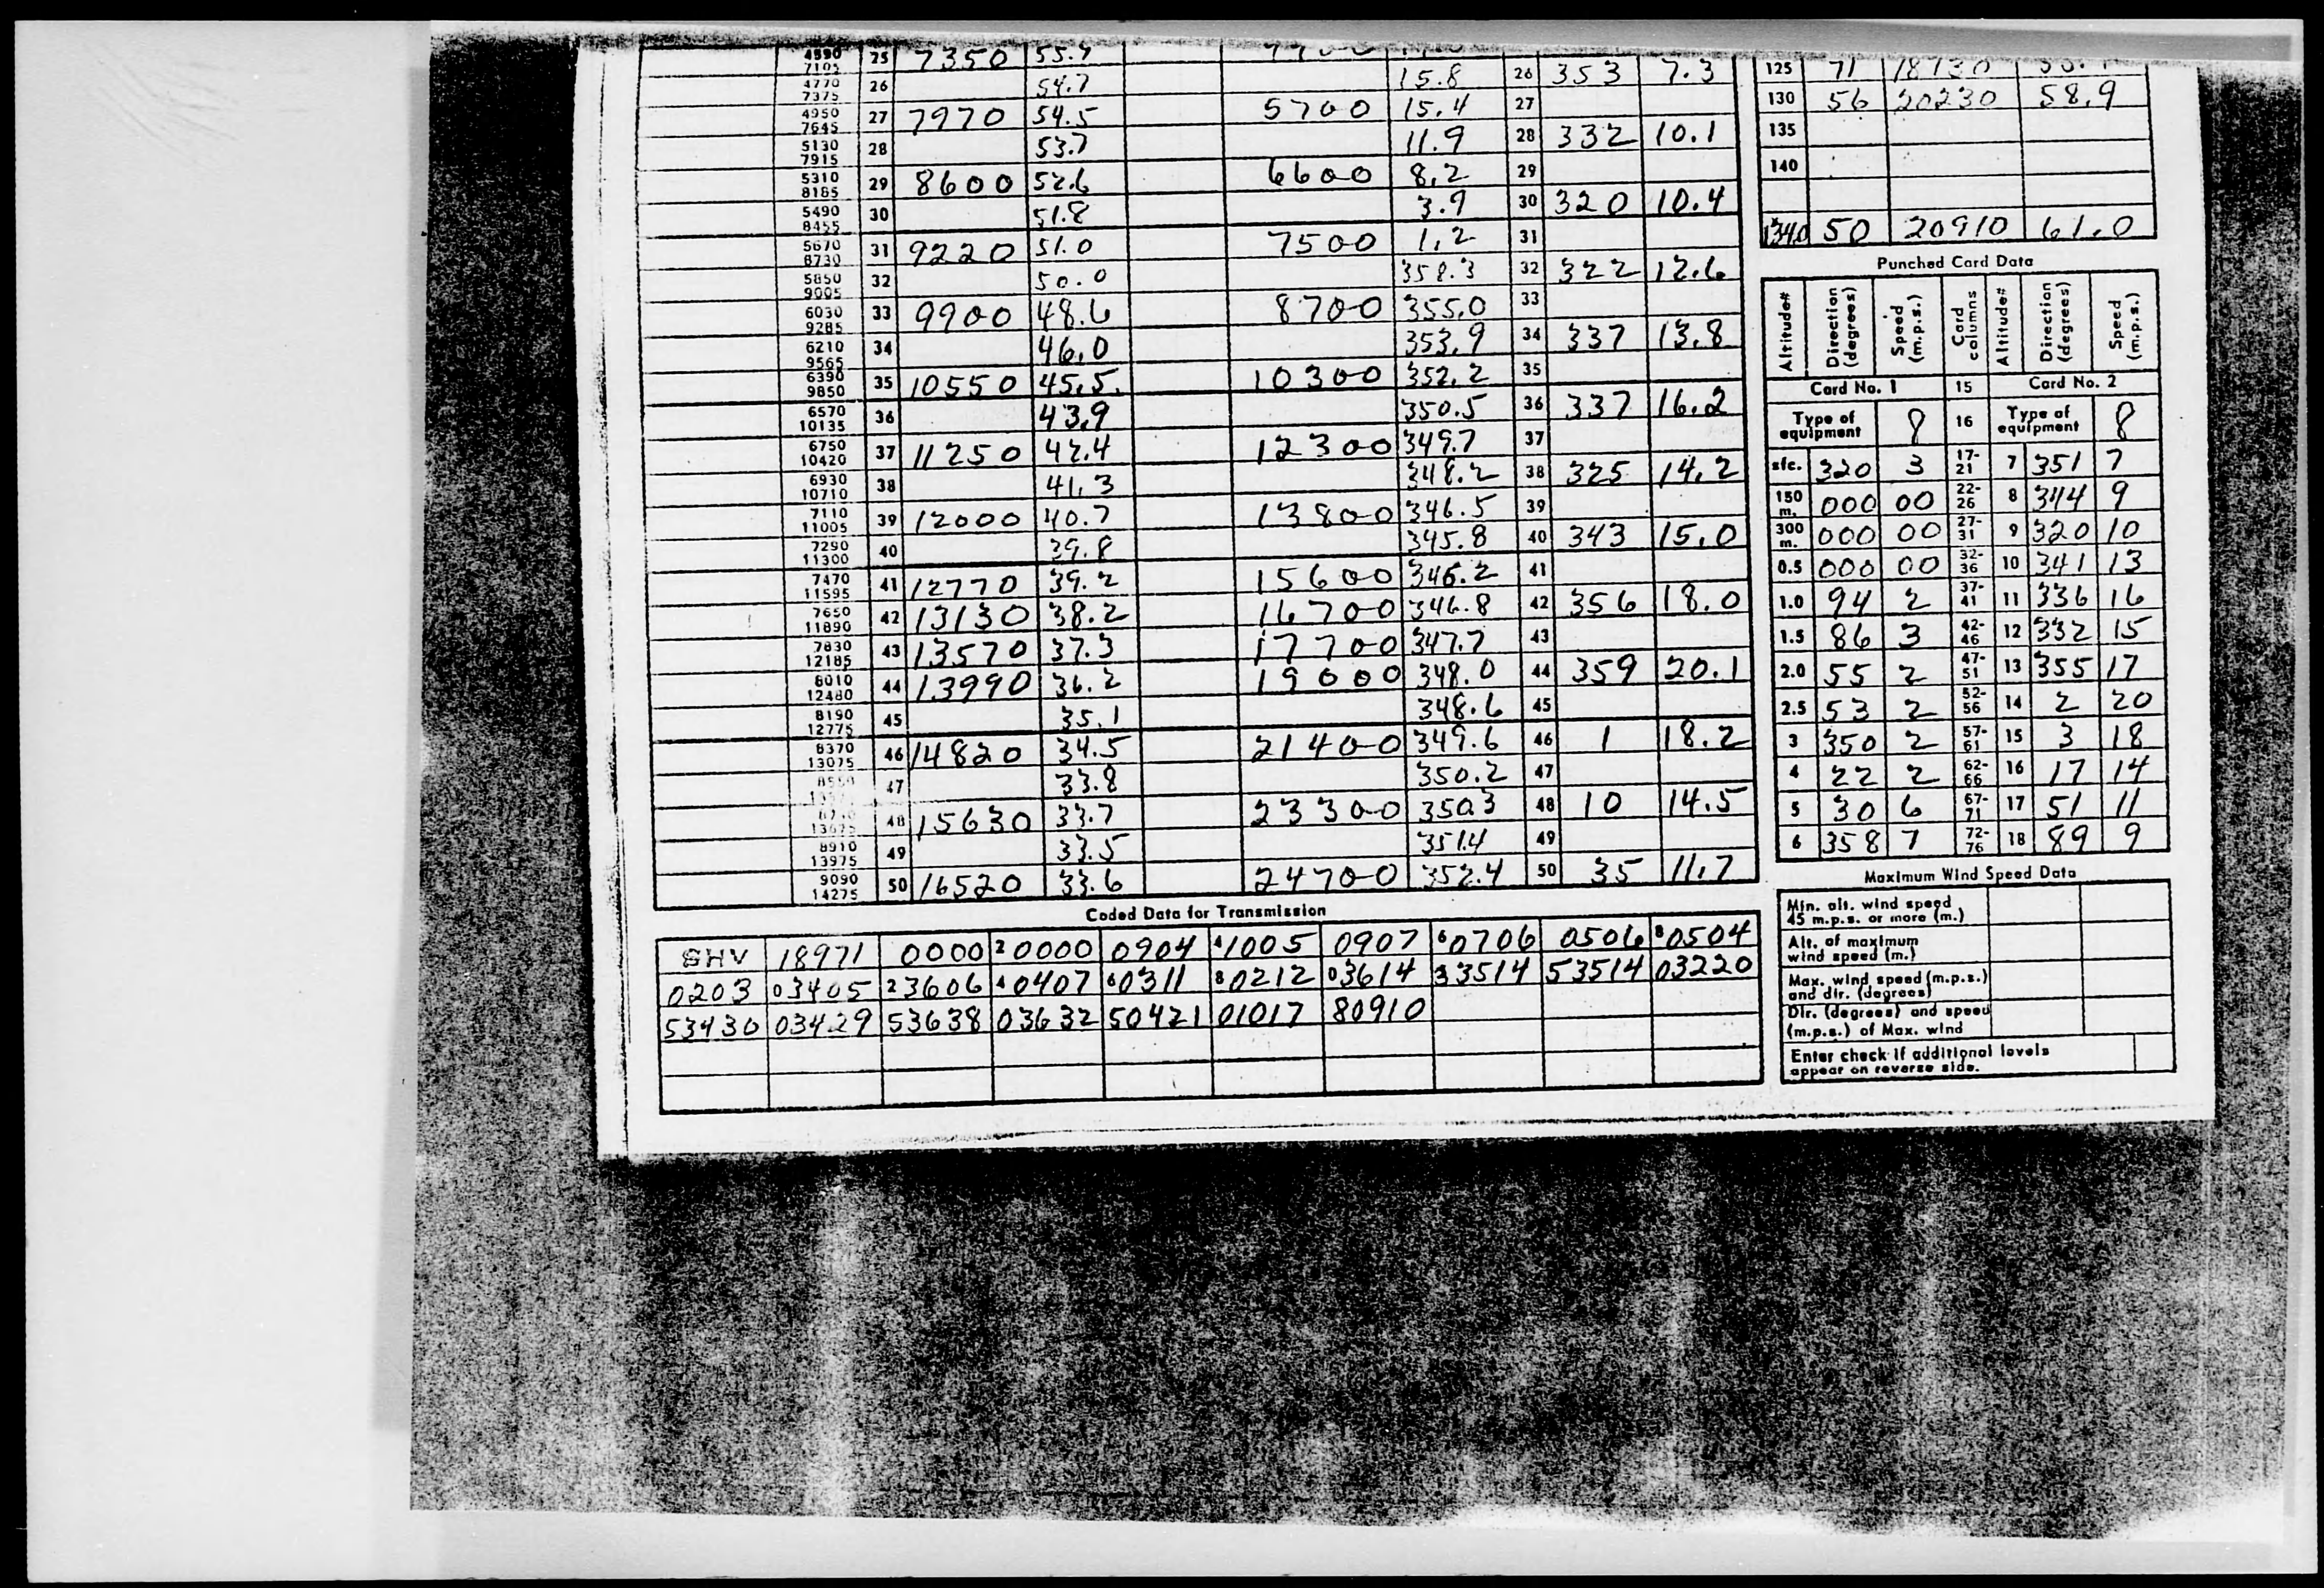 4590 25 7350 55.7
7105
4770 26 54.7 15.8 26 353 7.3
7375
4950 27 7970 54.5 5700 15.4 27
7645
5130 28 53.7 11.9 28 332 10.1
7915
5310 29 8600 52.6 6600 8.2 29
8185
5490 30 51.8 3.9 30 320 10.4
8455
5670 31 9220 51.0 7500 1.2 31
8730
5850 32 50.0 358.3 32 322 12.6
9005
6030 33 9900 48.6 8700 355.0 33
9285
6210 34 46.0 353.9 34 337 13.8
9565
6390 35 10550 45.5 10300 352.2 35
9850
6570 36 43.9 350.5 36 337 16.2
10135
6750 37 11250 42.4 12300 349.7 37
10420
6930 38 41.3 348.2 38 325 14.2
10710
7110 39 12000 40.7 13800 346.5 39
11005
7290 40 39.8 345.8 40 343 15.0
11300
7470 41 12770 39.2 15600 346.2 41
11595
7650 42 13130 38.2 16700 346.8 42 356 18.0
11890
7830 43 13570 37.3 17700 347.7 43
12185
8010 44 13990 36.2 19000 348.0 44 359 20.1
12480
8190 45 35.1 348.6 45
12775
8370 46 14820 34.5 21400 349.6 46 1 18.2
13075
47 33.8 350.2 47
48 15630 33.7 23300 350.3 48 10 14.5
13675
8910 49 33.5 351.4 49
13975
9090 50 16520 33.6 24700 352.4 50 35 11.7
14275
125 71
130 56 20230 58.9
135
140
1340 50 20910 61.0
Punched Card Data
Altitude# Direction (degrees) Speed (m.p.s.) Card columns Altitude# Direction (degrees) Speed (m.p.s.)
Card No. 1 15 Card No. 2
Type of equipment 8 16 Type of equipment 8
sfc. 320 3 17-21 7 351 7
150 m. 000 00 22-26 8 344 9
300 m. 000 00 27-31 9 320 10
0.5 000 00 32-36 10 341 13
1.0 94 2 37-41 11 336 16
1.5 86 3 42-46 12 332 15
2.0 55 2 47-51 13 355 17
2.5 53 2 52-56 14 2 20
3 350 2 57-61 15 3 18
4 22 2 62-66 16 17 14
5 30 6 67-71 17 51 11
6 358 7 72-76 18 89 9
Maximum Wind Speed Data
Min. alt. wind speed
45 m.p.s. or more (m.)
Alt. of maximum
wind speed (m.)
Max. wind speed (m.p.s.)
and dir. (degrees)
Dir. (degrees) and speed
(m.p.s.) of Max. wind
Enter check if additional levels
appear on reverse side.
Coded Data for Transmission
SHV 18971 0000 20000 0904 41005 0907 60706 0506 80504
0203 03405 23606 40407 60311 80212 03614 33514 53514 03220
53430 03429 53638 03632 50421 01017 80910